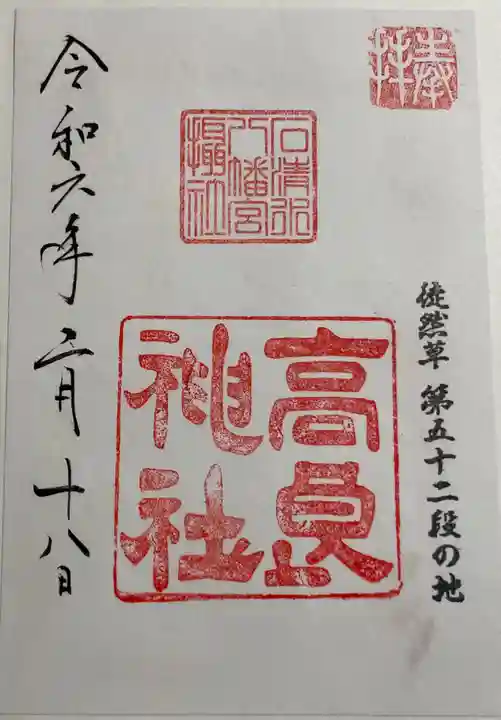 奉拝
徒然草 第五十二段の地
石清水
八幡宮
摂社
高良
神社
令和六年二月十八日